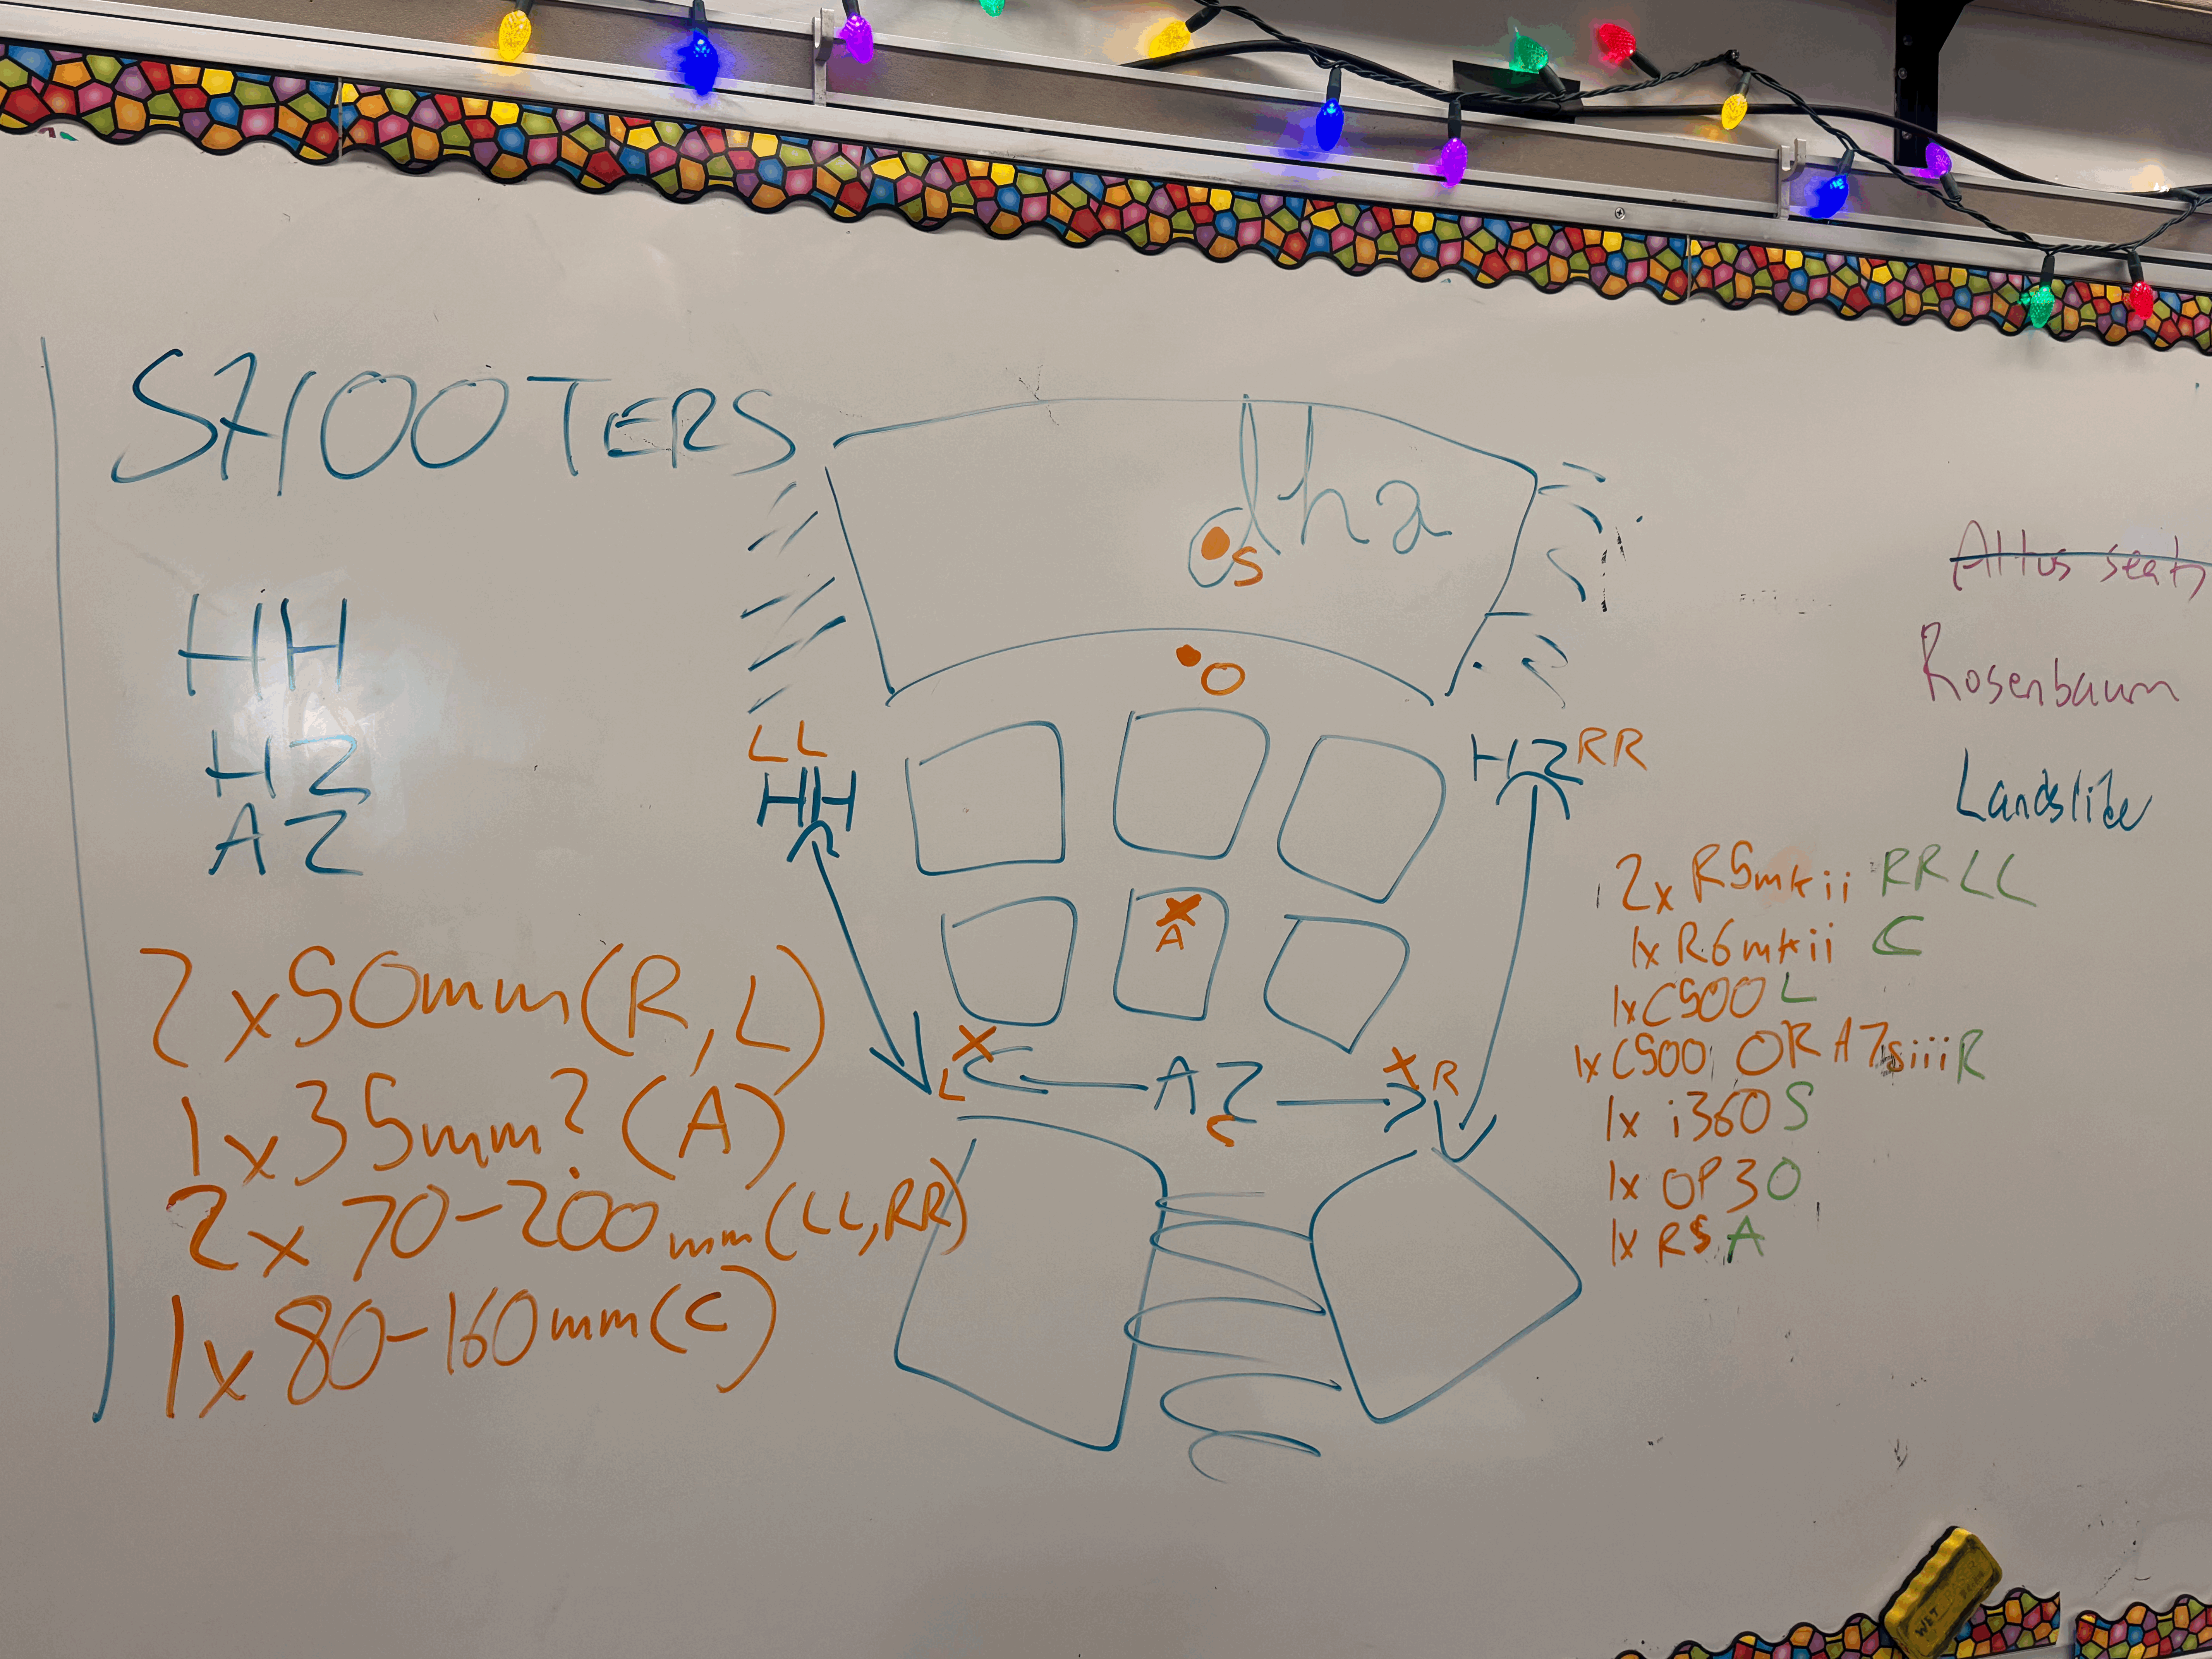 SHOOTERS
HH
HZ
AZ
2x50mm(R,L)
1x35mm?(A)
2x70-200mm(LL,RR)
1x80-160mm(C)
dha
S
O
LL
HH
HZ RR
A
L
AZ
C
R
Altus seats
Rosenbaum
Landslide
2x R5mkii RR LL
1x R6mkii C
1xC500 L
1xC500 OR A7siii R
1x i360 S
1x OP3 O
1x R5 A
WET